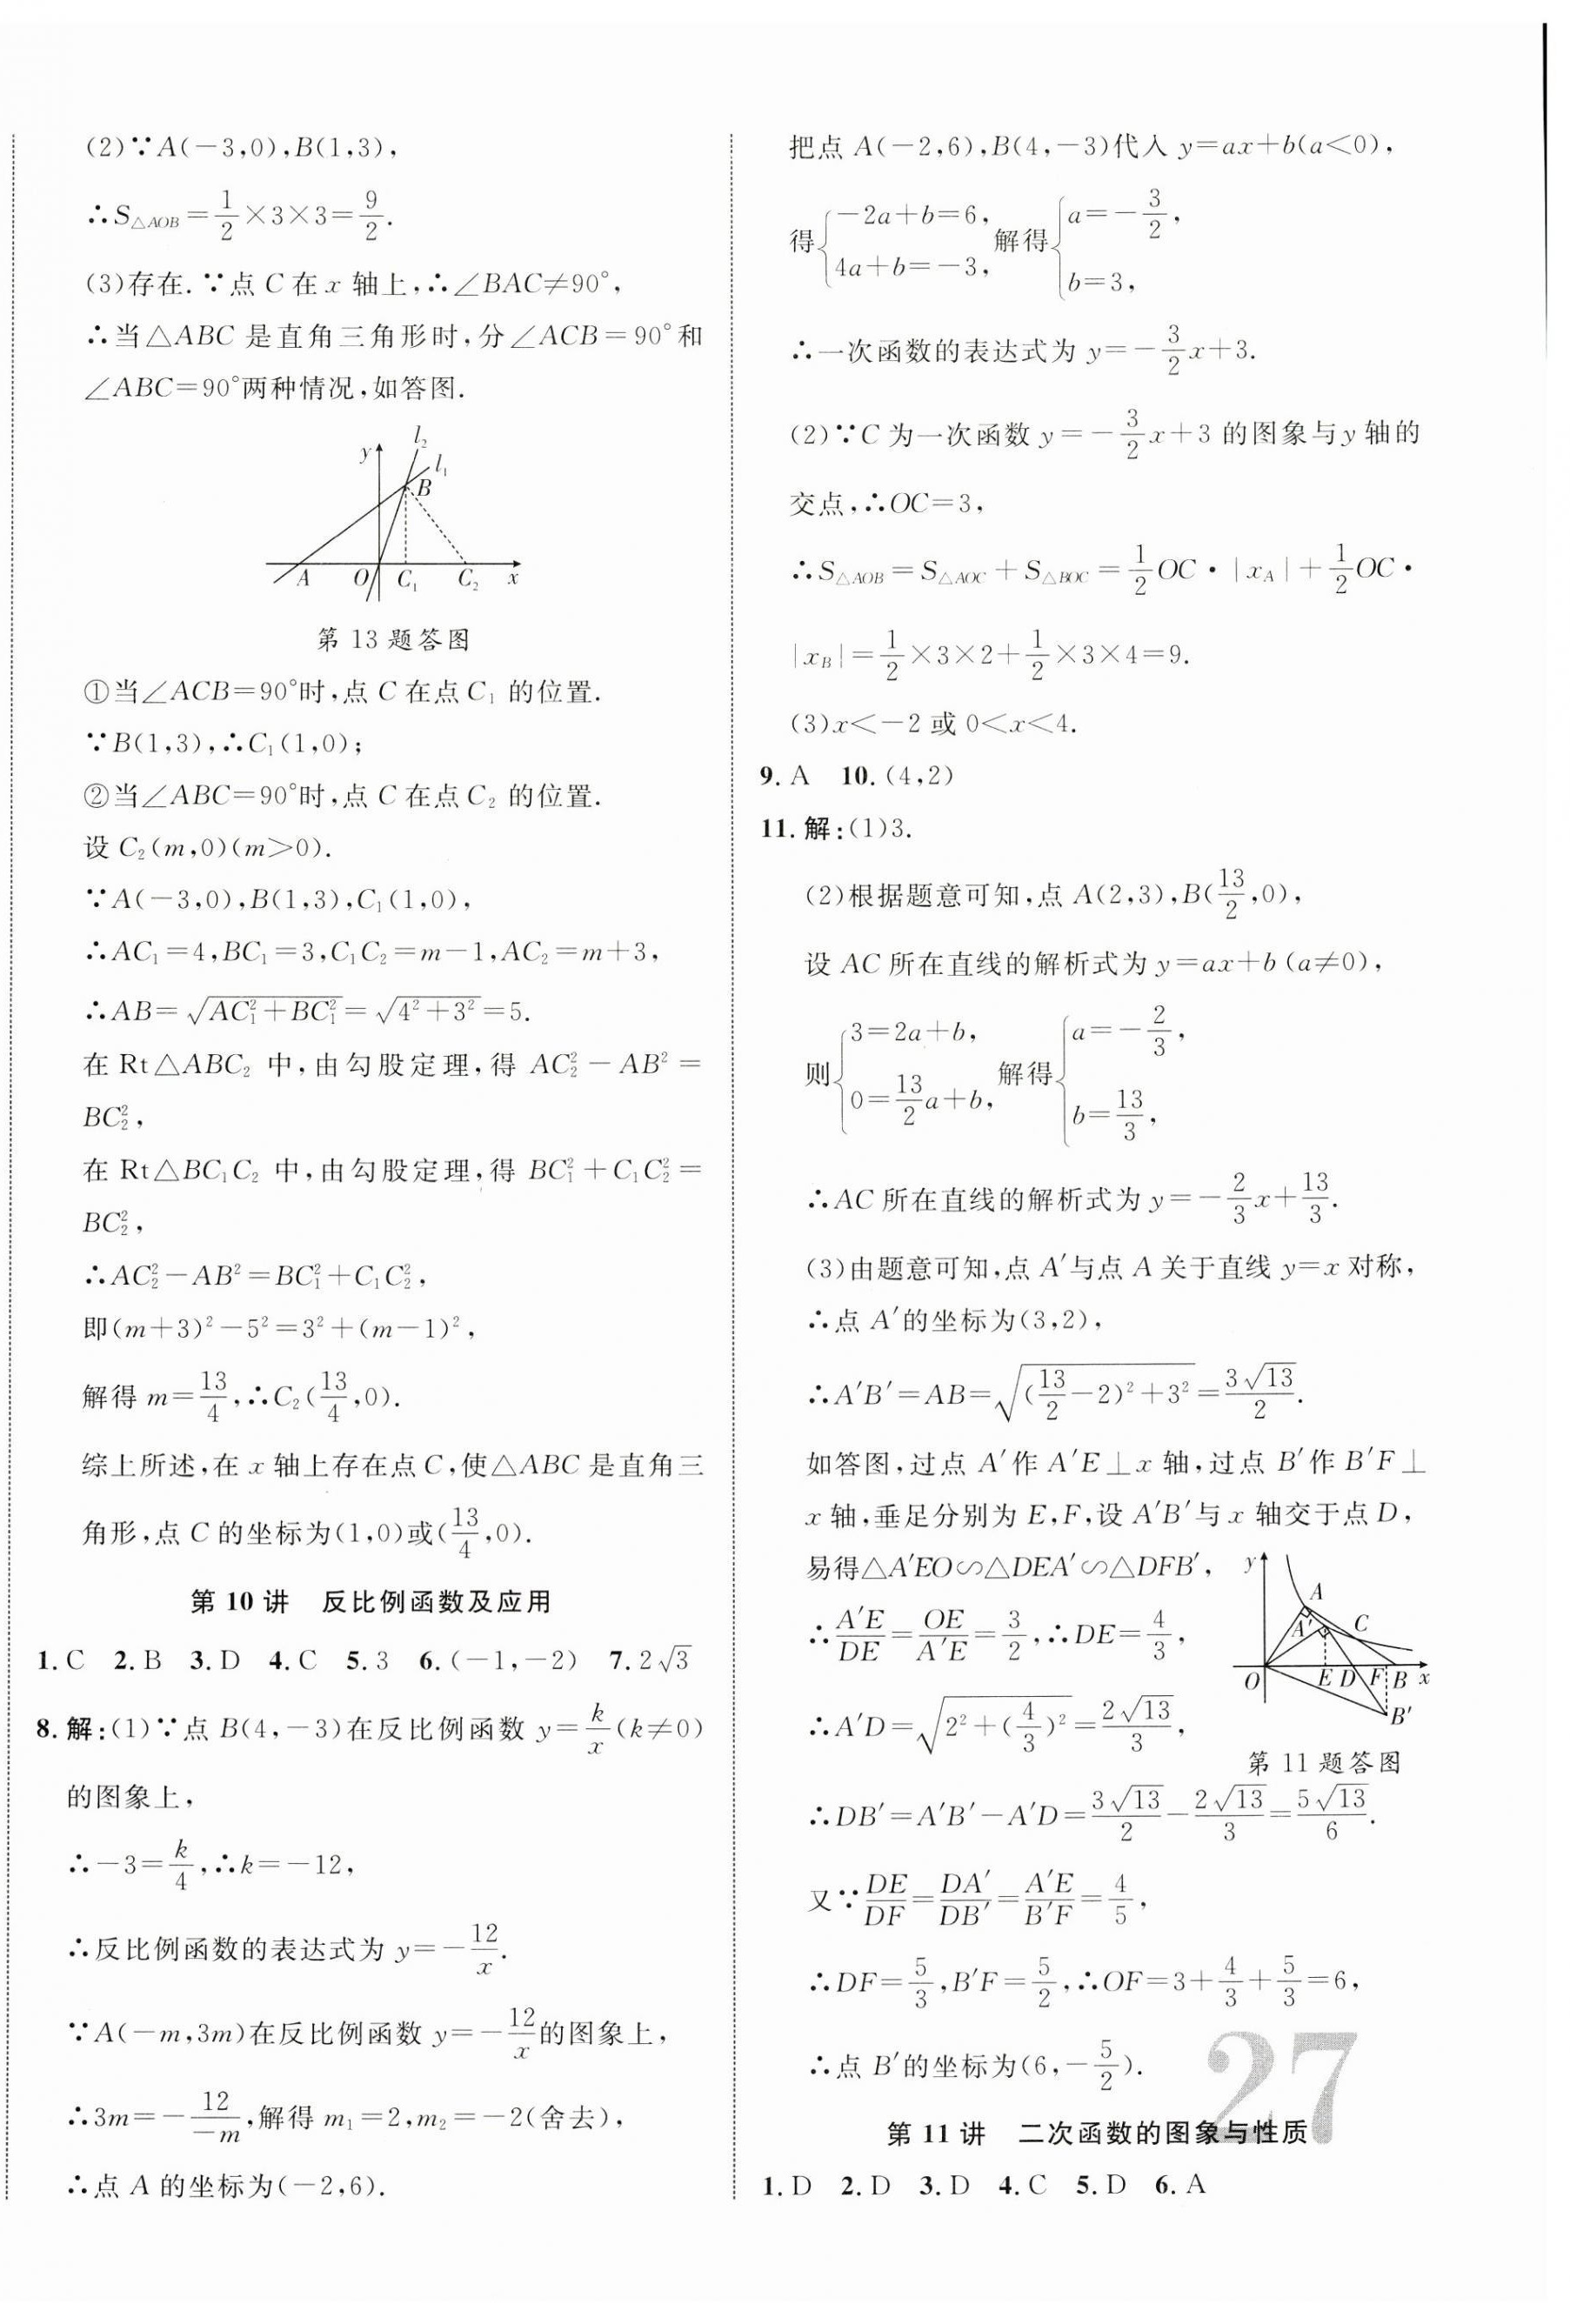 (2)∵A(-3,0),B(1,3),
∴S△AOB=1/2×3×3=9/2.
(3)存在.∵点 C 在 x 轴上,∴∠BAC≠90°,
∴当△ABC 是直角三角形时,分∠ACB=90°和
∠ABC=90°两种情况,如答图.
y l₂ l₁ B
A O C₁ C₂ x
第 13 题答图
①当∠ACB=90°时,点 C 在点 C₁ 的位置.
∵B(1,3),∴C₁(1,0);
②当∠ABC=90°时,点 C 在点 C₂ 的位置.
设 C₂(m,0)(m>0).
∵A(-3,0),B(1,3),C₁(1,0),
∴AC₁=4,BC₁=3,C₁C₂=m-1,AC₂=m+3,
∴AB=√(AC₁²+BC₁²)=√(4²+3²)=5.
在 Rt△ABC₂ 中,由勾股定理,得 AC₂²-AB²=
BC₂²,
在 Rt△BC₁C₂ 中,由勾股定理,得 BC₁²+C₁C₂²=
BC₂²,
∴AC₂²-AB²=BC₁²+C₁C₂²,
即(m+3)²-5²=3²+(m-1)²,
解得 m=13/4,∴C₂(13/4,0).
综上所述,在 x 轴上存在点 C,使△ABC 是直角三
角形,点 C 的坐标为(1,0)或(13/4,0).
第 10 讲 反比例函数及应用
1. C 2. B 3. D 4. C 5. 3 6. (-1,-2) 7. 2√3
8. 解:(1)∵点 B(4,-3)在反比例函数 y=k/x(k≠0)
的图象上,
∴-3=k/4,∴k=-12,
∴反比例函数的表达式为 y=-12/x.
∵A(-m,3m)在反比例函数 y=-12/x的图象上,
∴3m=-12/-m,解得 m₁=2,m₂=-2(舍去),
∴点 A 的坐标为(-2,6).
把点 A(-2,6),B(4,-3)代入 y=ax+b(a<0),
得{-2a+b=6, 4a+b=-3, 解得{a=-3/2, b=3,
∴一次函数的表达式为 y=-3/2x+3.
(2)∵C 为一次函数 y=-3/2x+3 的图象与 y 轴的
交点,∴OC=3,
∴S△AOB=S△AOC+S△BOC=1/2OC·|xA|+1/2OC·
|xB|=1/2×3×2+1/2×3×4=9.
(3)x<-2 或 0<x<4.
9. A 10. (4,2)
11. 解:(1)3.
(2)根据题意可知,点 A(2,3),B(13/2,0),
设 AC 所在直线的解析式为 y=ax+b(a≠0),
则{3=2a+b, 0=13/2a+b, 解得{a=-2/3, b=13/3,
∴AC 所在直线的解析式为 y=-2/3x+13/3.
(3)由题意可知,点 A′与点 A 关于直线 y=x 对称,
∴点 A′的坐标为(3,2),
∴A′B′=AB=√((13/2-2)²+3²)=3√13/2.
如答图,过点 A′作 A′E⊥x 轴,过点 B′作 B′F⊥
x 轴,垂足分别为 E,F,设 A′B′与 x 轴交于点 D,
易得△A′EO∽△DEA′∽△DFB′,
∴A′E/DE=OE/A′E=3/2,∴DE=4/3,
∴A′D=√(2²+(4/3)²)=2√13/3,
y A A′ C
O E D F B x
B′
第 11 题答图
∴DB′=A′B′-A′D=3√13/2-2√13/3=5√13/6.
又∵DE/DF=DA′/DB′=A′E/B′F=4/5,
∴DF=5/3,B′F=5/2,∴OF=3+4/3+5/3=6,
∴点 B′的坐标为(6,-5/2).
27
第 11 讲 二次函数的图象与性质
1. D 2. D 3. D 4. C 5. D 6. A